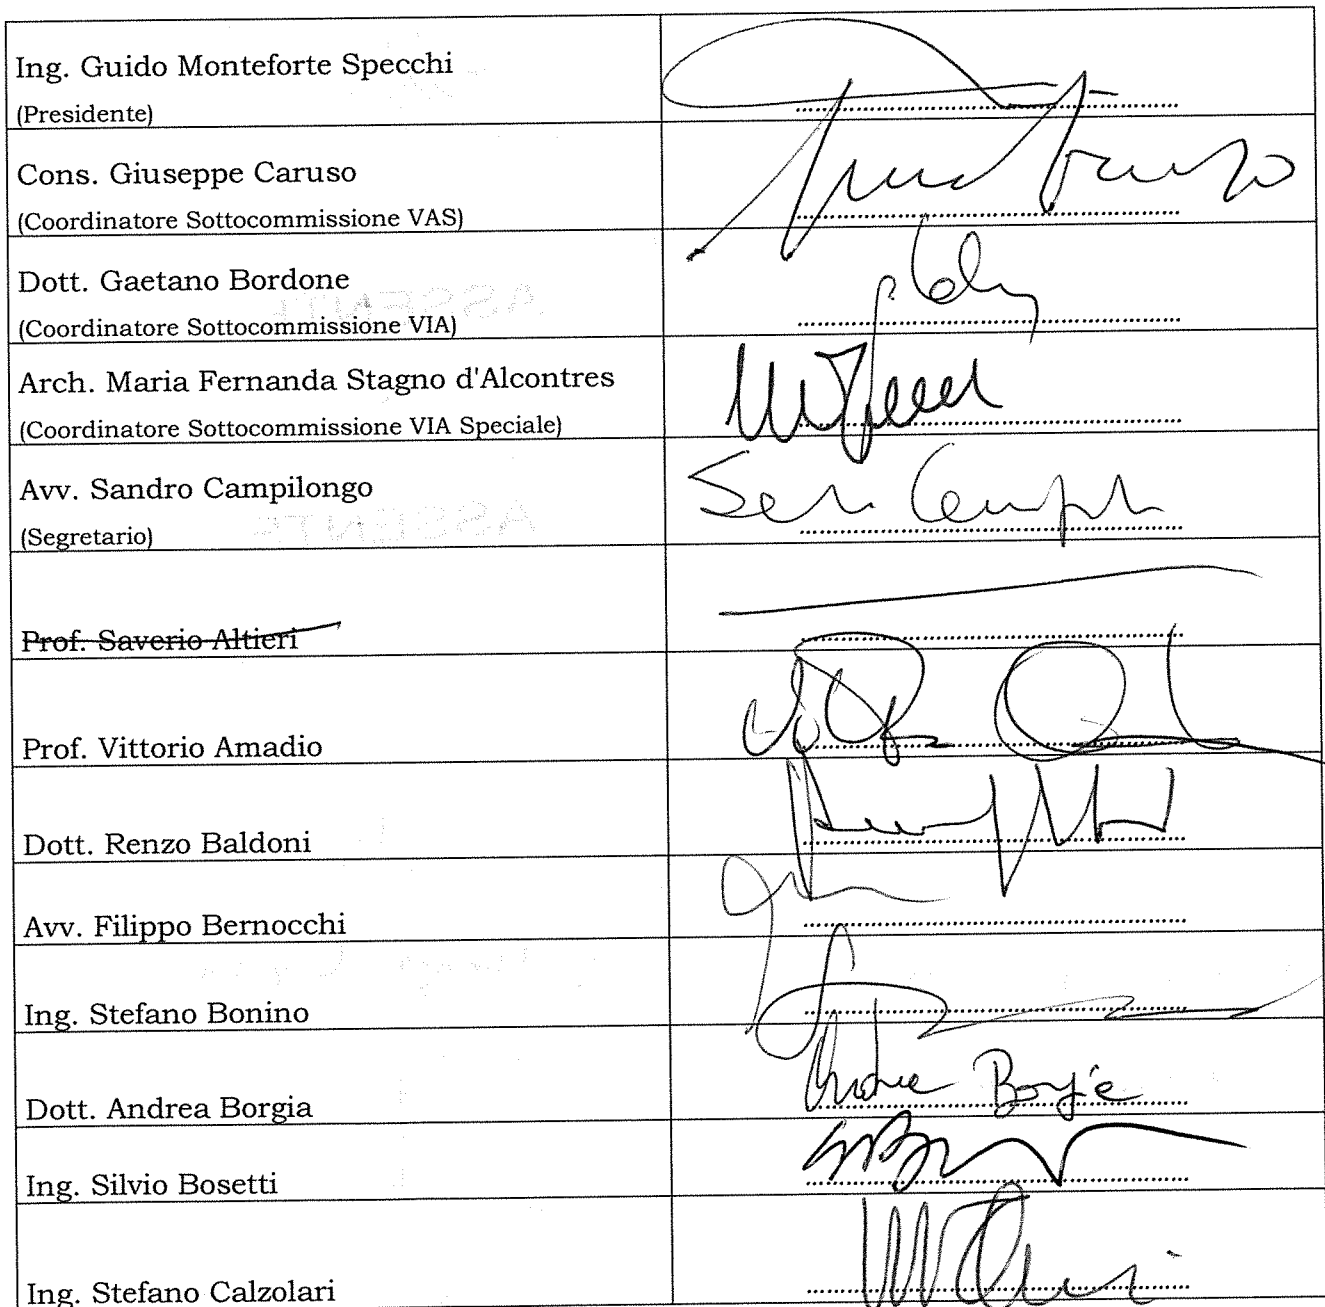 Ing. Guido Monteforte Specchi
(Presidente)
Cons. Giuseppe Caruso
(Coordinatore Sottocommissione VAS)
Dott. Gaetano Bordone
(Coordinatore Sottocommissione VIA)
Arch. Maria Fernanda Stagno d'Alcontres
(Coordinatore Sottocommissione VIA Speciale)
Avv. Sandro Campilongo
(Segretario)
Prof. Saverio Altieri
Prof. Vittorio Amadio
Dott. Renzo Baldoni
Avv. Filippo Bernocchi
Ing. Stefano Bonino
Dott. Andrea Borgia
Andrea Borgia
Ing. Silvio Bosetti
Ing. Stefano Calzolari